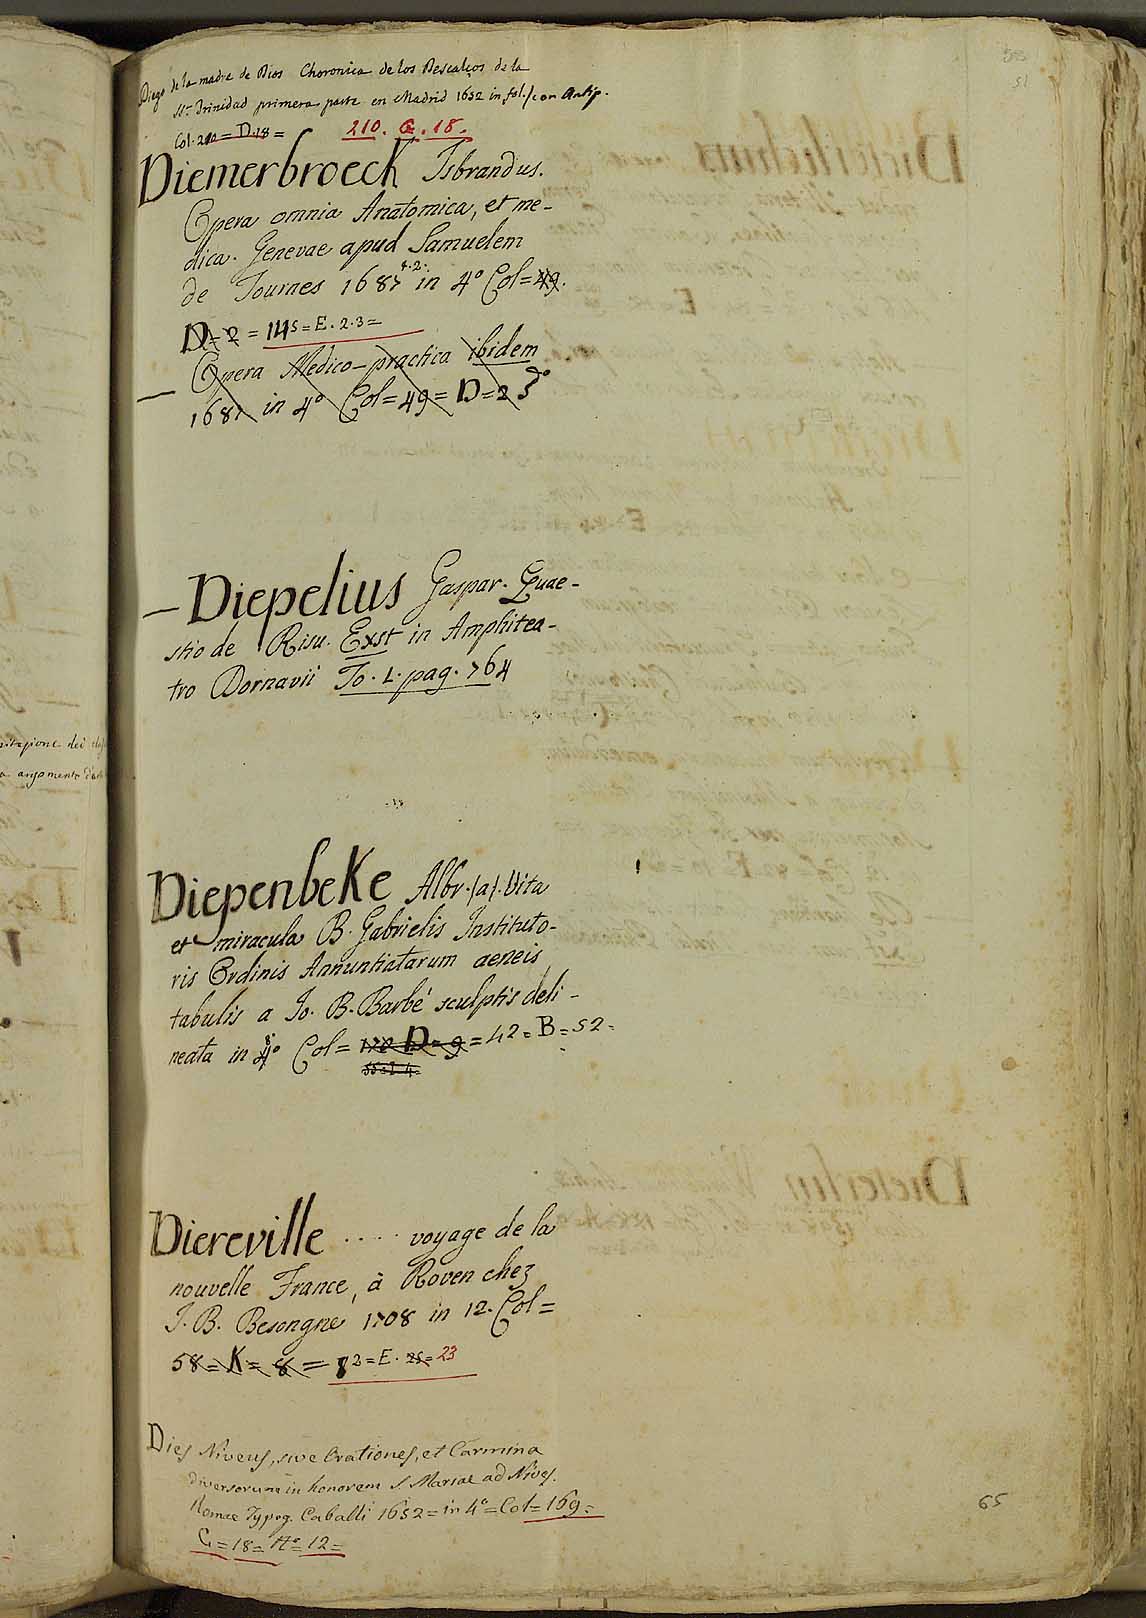 Diego de la madre de Dios Choronica de los Descalços de la
SS. Trinidad primera parte en Madrid 1652 in fol. / con Antip.
Col. 210 = D. 18 = 210. G. 18.
Diemerbroeck Isbrandus.
Opera omnia Anatomica, et me-
dica. Genevae apud Samuelem
de Tournes 1687 in 4º Col = 49.
D = 2 = 145 = E. 2. 3 =
— Opera Medico-practica ibidem
1687 in 4º Col = 49 = D = 2
— Diepelius Gaspar. Quae-
stio de Risu. Exst in Amphitea-
tro Dornavii To. 1. pag. 764
Diepenbeke Albr. (a). Vita
et miracula B. Gabrielis Instituto-
ris Ordinis Annuntiatarum aeneis
tabulis a Jo. B. Barbé sculptis deli-
neata in 4º Col = D = 9 = 42 = B = 52 =
Diereville .... voyage de la
nouvelle France, à Roven chez
J. B. Besongne 1708 in 12. Col =
58 = K = 8 = 82 = E. 25 = 23
Dies Niveus, sive Orationes, et Carmina
diversorum in honorem S. Mariae ad Nives.
Romae Typog. Caballi 1652 = in 4º = Col = 169 =
C = 18 = Nº 12 =
51
65